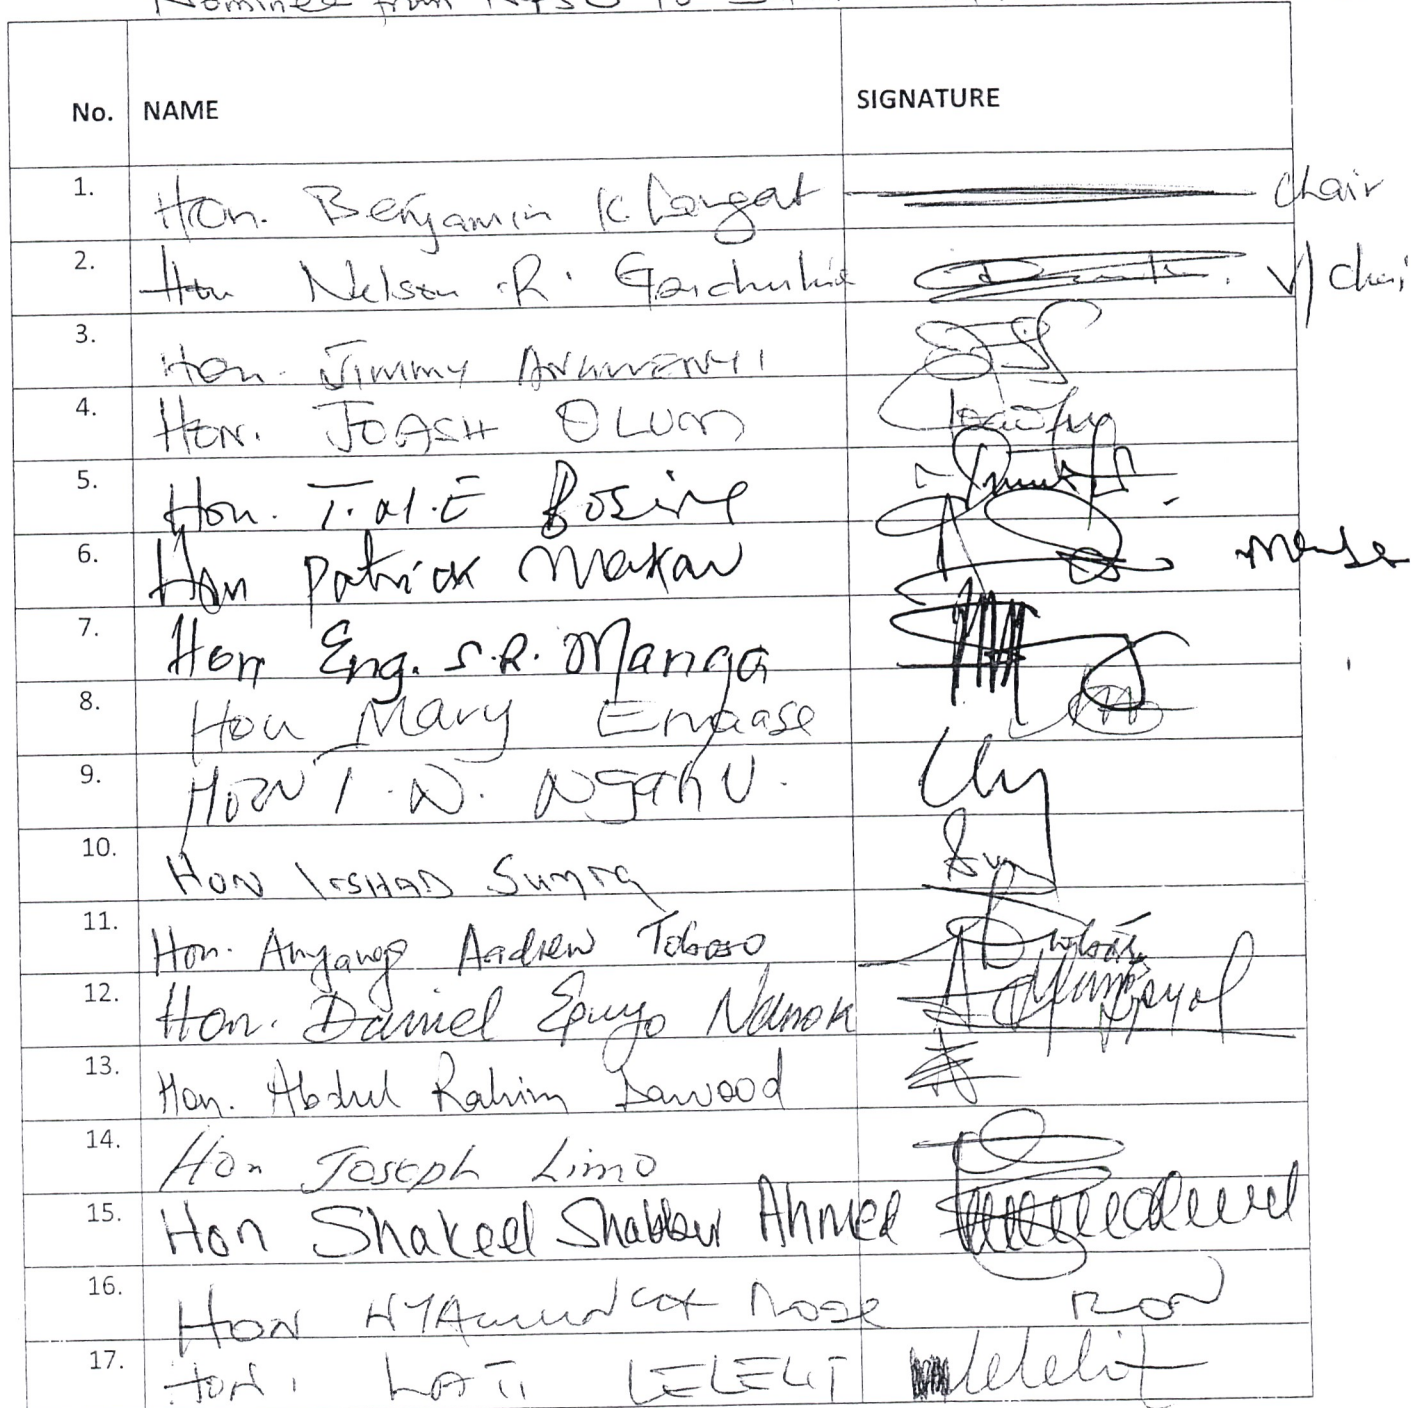 Nominee from
No. NAME SIGNATURE
1. Hon. Benjamin K. Langat chair
2. Hon Nelson R. Gaichuhie V/Chai
3. Hon. Jimmy ANGWENYI
4. HON. JOASH OLUM
5. Hon. T.M.E Bosire
6. Hon Patrick Makau
7. Hon Eng. S.R. Manga
8. Hon Mary Emaase
9. HON T.N. Ngahu.
10. HON IRSHAD Sumra
11. Hon. Anyango Andrew Toboso
12. Hon. Daniel Epuyo Nanok
13. Hon. Abdul Rahim Dawood
14. Hon Joseph Limo
15. Hon Shakeel Shabbir Ahmed
16. HON Rose RON
17. HON. LATI LELELIT Lelelit